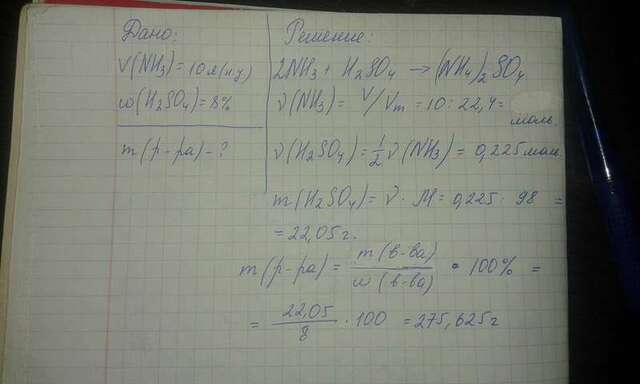 Дано:
V(NH3)=10л(н.у)
ω(H2SO4)=8%
m(р-ра)-?
Решение:
2NH3+ H2SO4 → (NH4)2SO4
ν(NH3)= V/Vm =10:22,4=
моль.
ν(H2SO4)=1/2 ν(NH3)= 0,225моль
m(H2SO4)= ν · M= 0,225 · 98 =
=22,05г.
m(р-ра)= m(в-ва)/ω(в-ва) · 100% =
= 22,05/8 · 100 =275,625г